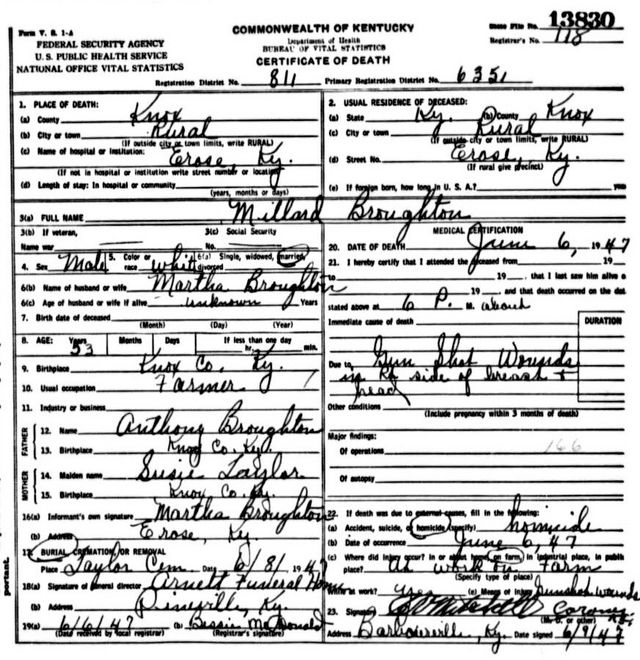 Form V. S. 1-A
FEDERAL SECURITY AGENCY
U. S. PUBLIC HEALTH SERVICE
NATIONAL OFFICE VITAL STATISTICS
COMMONWEALTH OF KENTUCKY
Department of Health
BUREAU OF VITAL STATISTICS
CERTIFICATE OF DEATH
State File No. 13830
Registrar's No. 118
Registration District No. 811 Primary Registration District No. 6351
1. PLACE OF DEATH:
(a) County Knox
(b) City or town Rural
(If outside city or town limits, write RURAL)
(c) Name of hospital or institution: Erose, Ky.
(If not in hospital or institution write street number or location)
(d) Length of stay: In hospital or community
(years, months or days)
2. USUAL RESIDENCE OF DECEASED:
(a) State Ky. (b) County Knox
(c) City or town Rural
(If outside city or town limits, write RURAL)
(d) Street No. Erose, Ky.
(If rural give precinct)
(e) If foreign born, how long in U. S. A.?
3(a) FULL NAME Millard Broughton
3(b) If veteran,
Name war
3(c) Social Security
No.
4. Sex Male 5. Color or race White 6(a) Single, widowed, married, divorced
6(b) Name of husband or wife Martha Broughton
6(c) Age of husband or wife if alive unknown Years
7. Birth date of deceased
(Month) (Day) (Year)
8. AGE: Years 53 Months Days If less than one day
hr. min.
9. Birthplace Knox Co. Ky.
10. Usual occupation Farmer
11. Industry or business
FATHER
12. Name Anthony Broughton
13. Birthplace Knox Co. Ky.
MOTHER
14. Maiden name Susie Taylor
15. Birthplace Knox Co. Ky.
16(a) Informant's own signature Martha Broughton
(b) Address Erose, Ky.
17. BURIAL, CREMATION OR REMOVAL
Place Taylor Cem. Date 6/8/1947
18(a) Signature of funeral director Arnett Funeral Home
(b) Address Pineville, Ky.
19(a) 6/6/47 (b) Bessie McDonald
(Date received by local registrar) (Registrar's signature)
MEDICAL CERTIFICATION
20. DATE OF DEATH June 6, 1947
21. I hereby certify that I attended the deceased from
19 to 19 , that I last saw him alive o
19 , and that death occurred on the dat
stated above at 6 P. M. about
Immediate cause of death
DURATION
Due to Gun Shot Wounds
in Rt side of breast +
head
Other conditions
(Include pregnancy within 3 months of death)
Major findings: 166
Of operations
Of autopsy
22. If death was due to external causes, fill in the following:
(a) Accident, suicide, or homicide (specify) homicide
(b) Date of occurrence June 6, 47
(c) Where did injury occur? In or about home, on farm, in industrial place, in public
place? At work on Farm
(Specify type of place)
While at work? yes (e) Means of injury Gunshot wounds
23. Signature Coroner
(M. D. or other)
Address Barbourville, Ky. Date signed 6/9/47
portant.